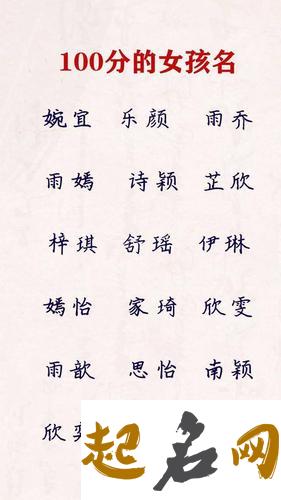 100分的女孩名
婉宜 乐颜 雨乔
雨嫣 诗颖 芷欣
梓琪 舒瑶 伊琳
嫣怡 家琦 欣雯
雨歆 思怡 南颖
欣
起名网